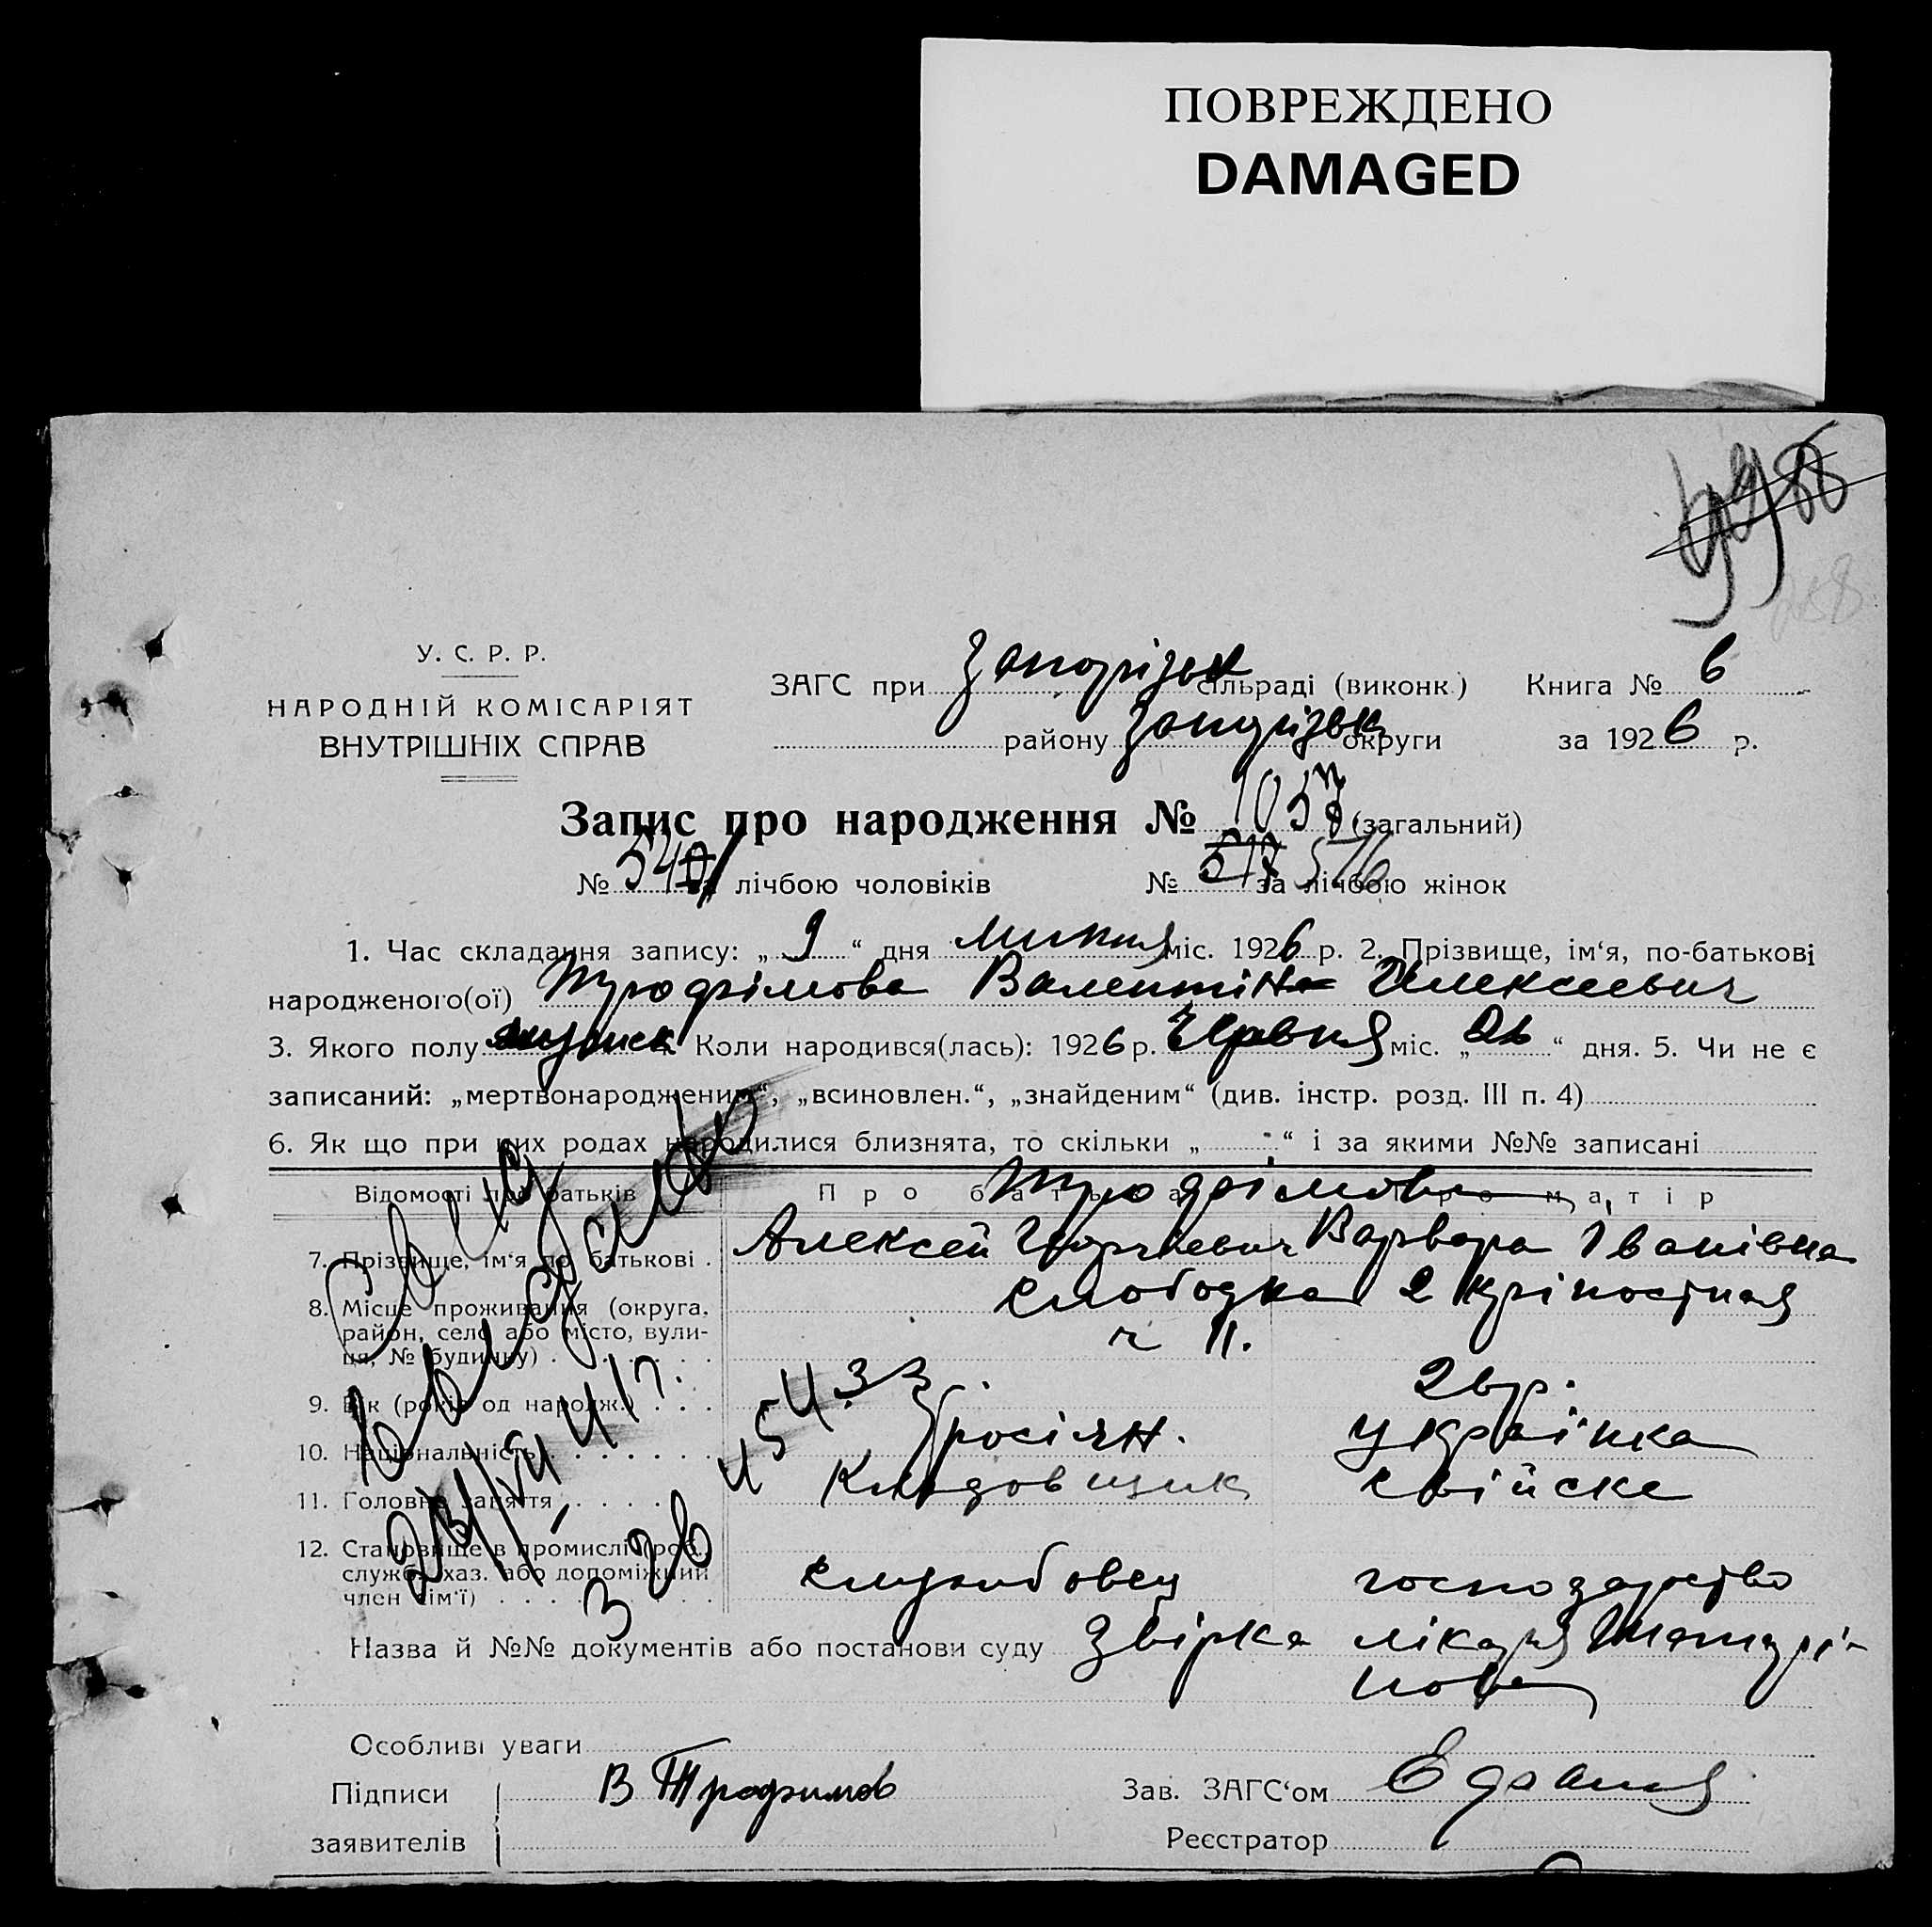 ПОВРЕЖДЕНО
DAMAGED
У. С. Р. Р.
НАРОДНІЙ КОМІСАРІЯТ
ВНУТРІШНІХ СПРАВ
ЗАГС при Запорізьк сільраді (виконк.) Книга № 6
району Запорізьк округи за 1926 р.
Запис про народження № 1057 (загальний)
№ 541 за лічбою чоловіків № 517 516 за лічбою жінок
1. Час складання запису: „ 9 “ дня липня міс. 1926 р. 2. Прізвище, ім‘я, по-батькові
народженого(ої) Трофімова Валентіна Алексеевич
3. Якого полу Коли народився(лась): 1926 р. Червня міс. „ “ дня. 5. Чи не є
записаний: „мертвонародженим“, „всиновлен.“, „знайденим“ (див. інстр. розд. III п. 4)
6. Як що при цих родах народилися близнята, то скільки „ “ і за якими №№ записані
Відомості про батьків Про батька Про матір
Трофімови
7. Прізвище, ім‘я по батькові . Алексей Георгіевич Варвара Іванівна
8. Місце проживання (округа, слободка 2 кріпостная
район, село або місто, вули-
ця, № будинку) . ч 11.
9. Вік (років од народж.) . . . 33. 26 р.
10. Національність . . . . . . росіян. українка
11. Головне заняття . . . . . Кладовщик свійске
12. Становище в промислі (роб.,
служб., хаз. або допоміжний службовец господарство
член сім‘ї) . . . . . . . .
Назва й №№ документів або постанови суду Звірка лікаря
Особливі уваги
Підписи В Трофимов Зав. ЗАГС‘ом
заявителів Реєстратор